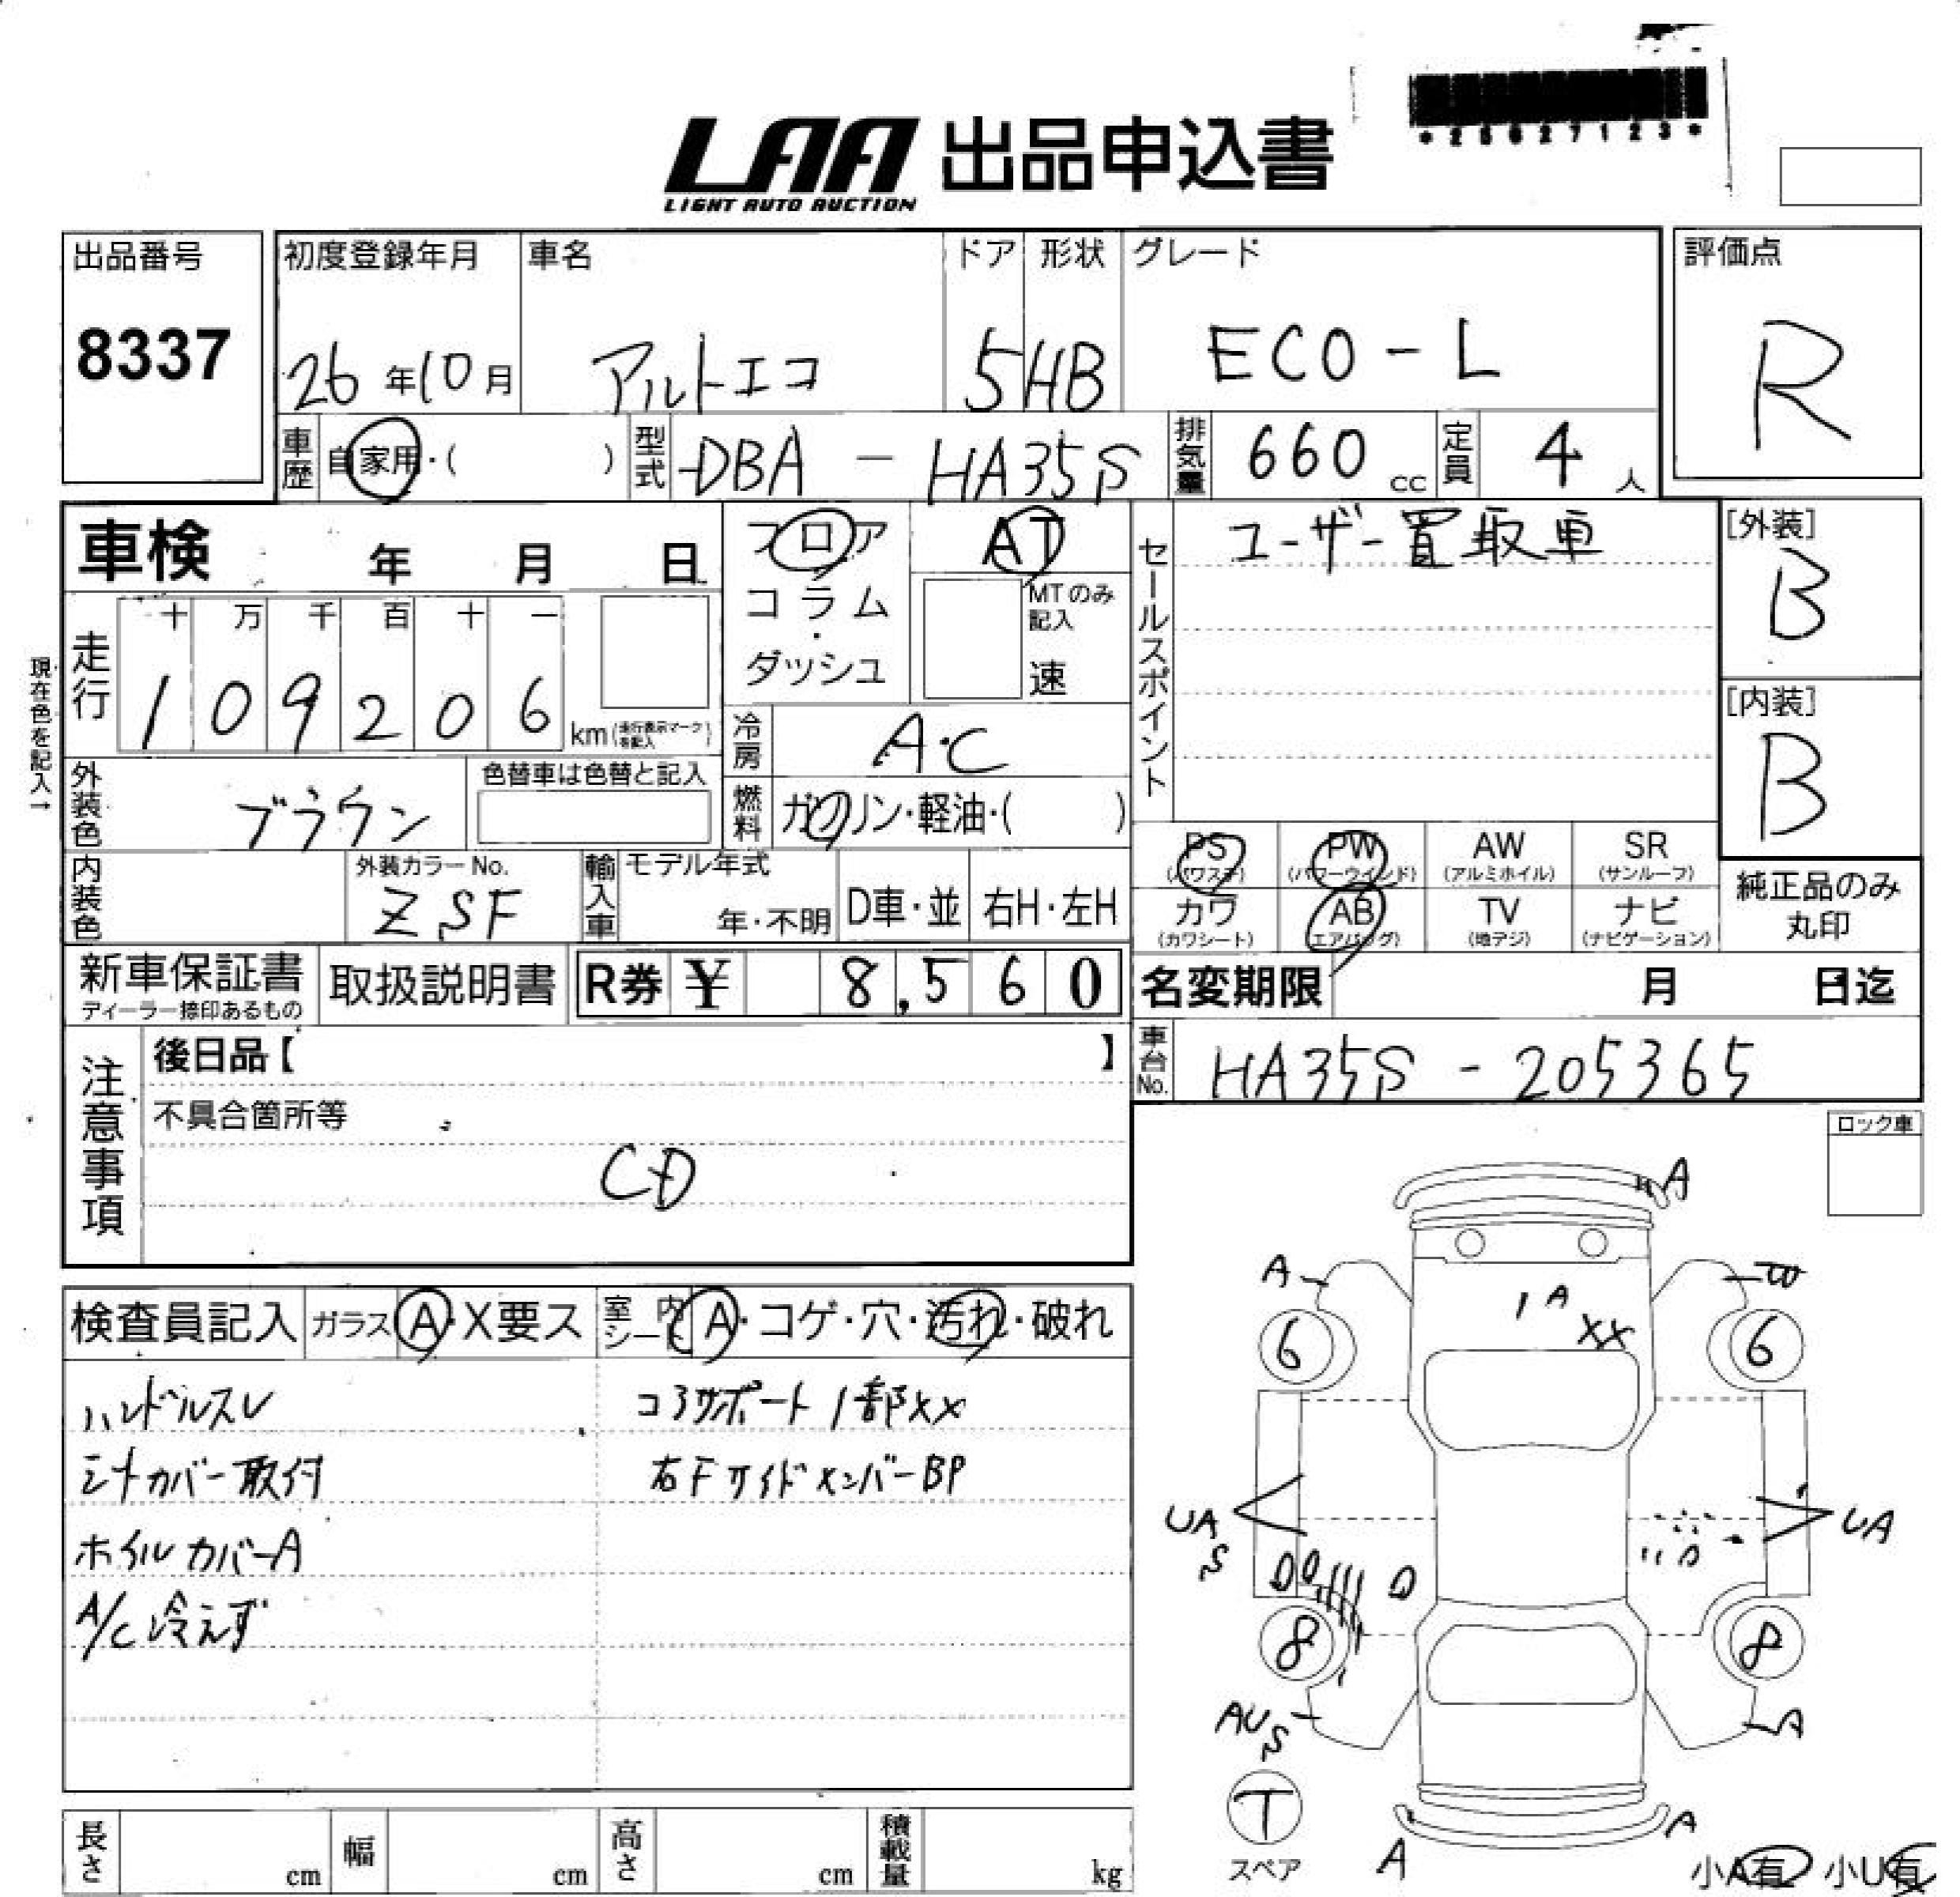 *25627123*
LAA 出品申込書
LIGHT AUTO AUCTION
出品番号 8337
初度登録年月 26年10月
車名 アルトエコ
ドア 5
形状 HB
グレード ECO-L
評価点 R
車歴 自家用・( )
型式 DBA - HA35S
排気量 660 cc
定員 4 人
車検 年 月 日
フロア
コラム・
ダッシュ
AT
MTのみ記入
速
セールスポイント
ユーザー買取車
[外装] B
[内装] B
現在色を記入→
走行 十 万 千 百 十 一
1 0 9 2 0 6 km (走行表示マークを記入)
冷房 A・C
外装色 ブラウン
色替車は色替と記入
燃料 ガソリン・軽油・( )
PS (パワステ) PW (パワーウインド) AW (アルミホイル) SR (サンルーフ)
カワ (カワシート) AB (エアバッグ) TV (地デジ) ナビ (ナビゲーション)
純正品のみ丸印
内装色
外装カラーNo. ZSF
輸入車 モデル年式 年・不明 D車・並 右H・左H
新車保証書 ディーラー捺印あるもの
取扱説明書
R券 ¥ 8,560
名変期限 月 日迄
車台No. HA35S - 205365
注意事項
後日品【 】
不具合箇所等
CD
ロック車
検査員記入 ガラス A・X要ス 室内シート A・コゲ・穴・汚れ・破れ
ハンドルスレ
コアサポート1部XX
シートカバー取付
右FサイドメンバーBP
ホイルカバーA
A/C冷えず
A
A
1 A
XX
6
6
UA
S
UA
D
8
8
AU
S
A
T
スペア
A
A
小A有 小U有
長さ cm 幅 cm 高さ cm 積載量 kg